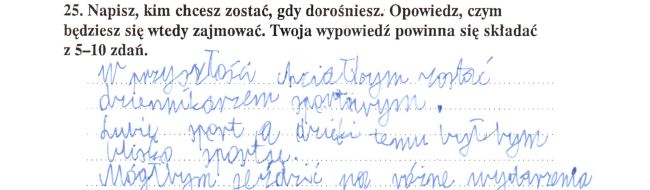 25. Napisz, kim chcesz zostać, gdy dorośniesz. Opowiedz, czym
będziesz się wtedy zajmować. Twoja wypowiedź powinna się składać
z 5–10 zdań.
W przyszłości chciałbym zostać
dziennikarzem sportowym.
Lubię sport a dzięki temu byłbym
blisko sportu.
Mógłbym jeździć na różne wydarzenia